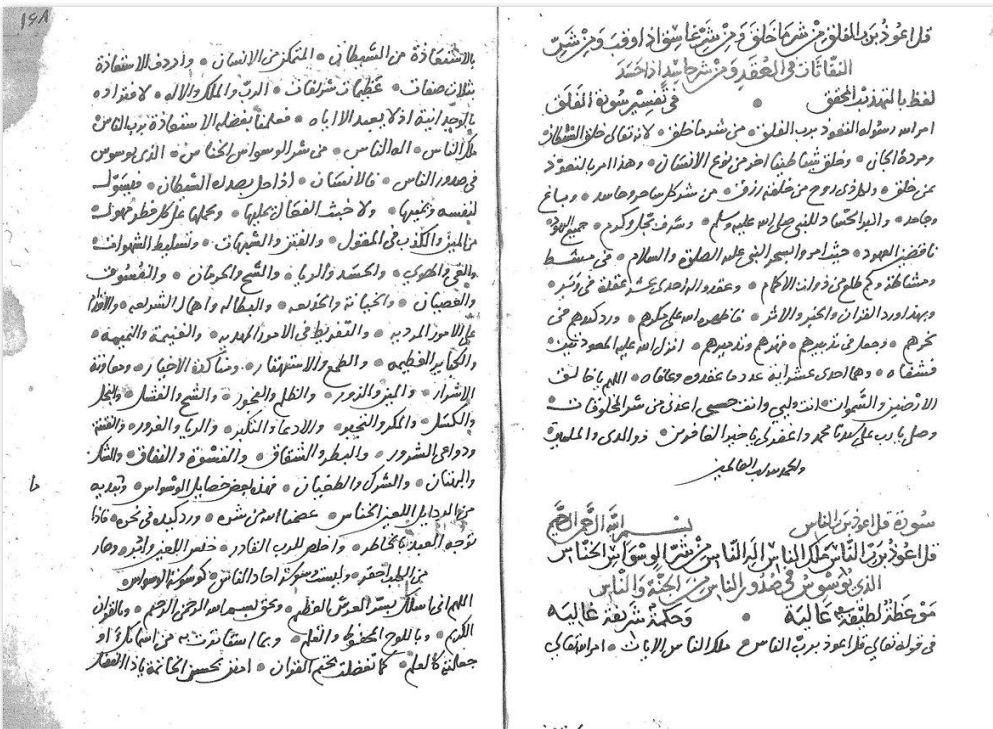 قل اعوذ برب الفلق من شر ما خلق ومن شر غاسق اذا وقب ومن شر
النفاثات في العقد ومن شر حاسد اذا حسد
لفظ بالتهذيب المحقق • في تفسير سورة الفلق
امر الله رسوله التعوذ برب الفلق • من شر ما خلق • لانه تعالى خلق الشيطان
ومردة الجان • وخلق شيطانا اخر من نوع الانسان • وهذا امر بالتعوذ
ممن خلق • ولكل ذي روح من خلقه رزق • من شر كل ساحر وحاسد • وباغ
وجاحد • للنبي صلى الله عليه وسلم • وشرف وكرم • جميع
ناقضين العهود • النبي عليه الصلوة والسلام • في مشط
ومشاطة • وعقدوا له احدى عشر عقدة في وتر •
وبهذا ورد القران والخبر والاثر • فاظهره الله على مكرهم • ورد كيدهم في
نحرهم • وجعل في تدبيرهم • تدميرهم • انزل الله عليه المعوذتين
فشفاه • وهما احدى عشر اية عدد ما عقدوه وعافاه • اللهم يا خالق
الارضين والسموات • انت وليي وانت حسبي اعذني من شر المخلوقات •
وصل يا رب على سيدنا محمد واغفر لي يا خير الغافرين • ذوالدي والمسلمين
والحمد لله رب العالمين
سورة قل اعوذ برب الناس بسم الله الرحمن الرحيم
قل اعوذ برب الناس ملك الناس اله الناس من شر الوسواس الخناس
الذي يوسوس في صدور الناس من الجنة والناس
موعظة لطيفة عالية • وحكمة شريفة غالية
في قوله تعالى قل اعوذ برب الناس • ملك الناس الايات • امر الله تعالى
١٦٨
بالاستعاذة من الشيطان • المتمكن من الانسان • واردف الاستعاذة
بثلاث صفات • عظيمات شريفات • الرب والملك والاله •
بالوحدانية اذ لا يعبد الا اياه • فعلمنا بفضله الاستعاذة برب الناس
ملك الناس • اله الناس • من شر الوسواس الخناس • الذي يوسوس
في صدور الناس • فالانسان • اذا حل بصدره الشيطان • فيسول
لنفسه ويمنيها • ولاخبث الفعال يمليها • ويحملها على كل
من المين والكذب في المقول • والفتن والشبهات • وتسليط الشهوات •
والغي والهوى • والحسد والريا • والشح والحرمان • والفسوق
والعصيان • والخيانة والخديعه • والبطاله واهمال الشريعه •
على الامور المرديه • والتفريط في الامور المهديه • والغيبة والنميمة •
والكباير العظيمه • والطمع والاستهتار • ومناكدة الاخيار • ومعاونة
الاشرار • والمين والزور • والظلم والفجور • والشح والفشل • والبخل
والكسل • والمكر والتجبر • والادعا والتكبر • والريا والغرور • والفتنة
ودواعي الشرور • والبطر والشقاق • والقسوة والنفاق • والشك
والبهتان • والشرك والطغيان • فهذه بعض خصايل الوسواس • وتبديه
من الرذايل اللعين الخناس • عصمنا الله من شره • ورد كيده في نحره • فاذا
توجه العبد بالخاطر • واخلص للرب القادر • خنس اللعين وادبر • وصار
من الطير احقر • وليست وسوسة احاد الناس • كوسوسة الوسواس
اللهم اني اسئلك بسر العرش العظيم • وبحق بسم الله الرحمن الرحيم • وبالقران
الكريم • وباللوح المحفوظ والقلم • وبما استاثرت به من اسمائك او
جعلته كالعلم • كما تفضلت بختم القران • امنن بحسن الخاتمة يا ذا الغفران